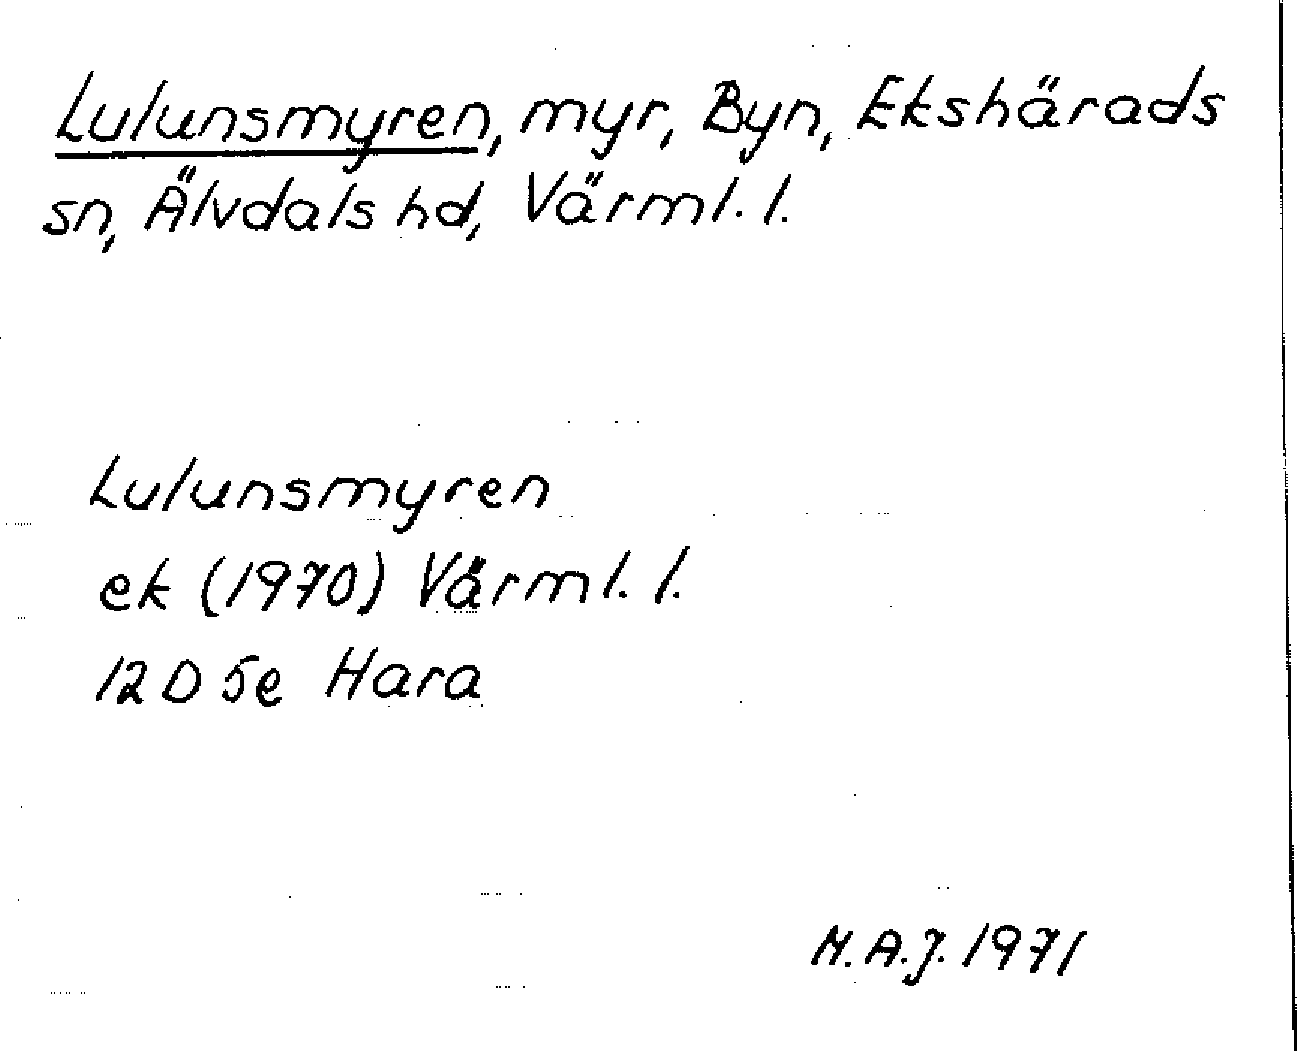 Lulunsmyren, myr, Byn, Ekshärads
sn, Älvdals hd, Värml. l.
Lulunsmyren
ek (1970) Värml. l.
12 D 5e Hara
M.A.J. 1971